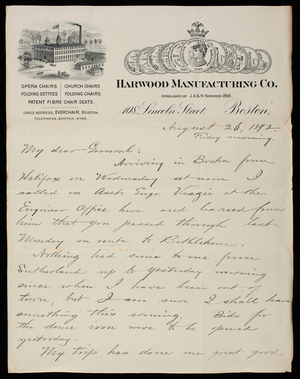 OPERA CHAIRS CHURCH CHAIRS
FOLDING SETTEES FOLDING CHAIRS
PATENT FIBRE CHAIR SEATS.
CABLE ADDRESS, EVERCHAIR, BOSTON.
TELEPHONE, BOSTON 2755.
HARWOOD MANUFACTURING CO.
ESTABLISHED BY J. & S. HARWOOD
Lincoln Street, Boston,
August 26, 1892
Friday morning.
My dear General:
Arriving in Boston from
Halifax on Wednesday at noon I
called on Asst. Engr. in the
Engineer Office here and learned from
him that you passed through last
Monday en route to Bethlehem.
Nothing had come to me from
Sutherland up to yesterday morning
since when I have been out of
town, but I am sure I shall have
something this evening. Bids for
the dome room were to be opened
yesterday.
My trip has done me great good